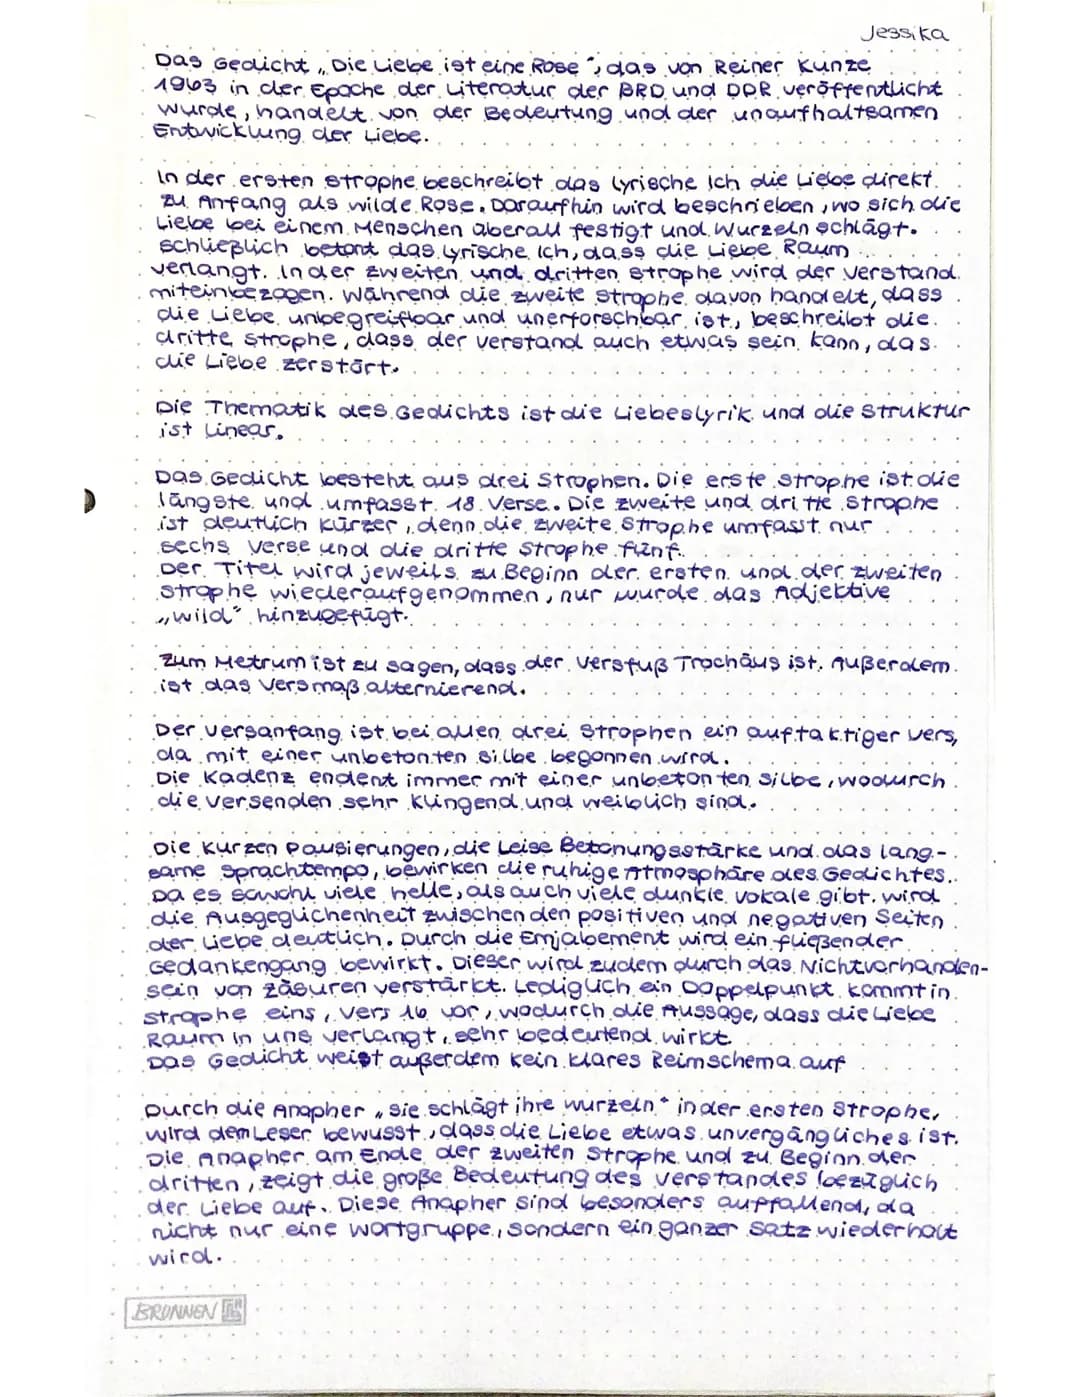 Jessika
Das Gedicht „Die Liebe ist eine Rose“, das von Reiner Kunze
1963 in der Epoche der Literatur der BRD und DDR veröffentlicht
wurde, handelt von der Bedeutung und der unaufhaltsamen
Entwicklung der Liebe.
In der ersten Strophe beschreibt das lyrische Ich die Liebe direkt
zu Anfang als wilde Rose. Daraufhin wird beschrieben, wo sich die
Liebe bei einem Menschen überall festigt und Wurzeln schlägt.
Schließlich betont das lyrische Ich, dass die Liebe Raum
verlangt. In der zweiten und dritten Strophe wird der Verstand
miteinbezogen. Während die zweite Strophe davon handelt, dass
die Liebe unbegreifbar und unerforschbar ist, beschreibt die
dritte Strophe, dass der Verstand auch etwas sein kann, das
die Liebe zerstört.
Die Thematik des Gedichts ist die Liebeslyrik und die Struktur
ist linear.
Das Gedicht besteht aus drei Strophen. Die erste Strophe ist die
längste und umfasst 18 Verse. Die zweite und dritte Strophe
ist deutlich kürzer, denn die zweite Strophe umfasst nur
sechs Verse und die dritte Strophe fünf.
Der Titel wird jeweils zu Beginn der ersten und der zweiten
Strophe wiederaufgenommen, nur wurde das Adjektive
„wild“ hinzugefügt.
Zum Metrum ist zu sagen, dass der Versfuß Trochäus ist. Außerdem
ist das Versmaß alternierend.
Der Versanfang ist bei allen drei Strophen ein auftaktiger Vers,
da mit einer unbetonten Silbe begonnen wird.
Die Kadenz endent immer mit einer unbetonten Silbe, wodurch
die Versenden sehr klingend und weiblich sind.
Die kurzen Pausierungen, die leise Betonungsstärke und das lang-
same Sprachtempo, bewirken die ruhige Atmosphäre des Gedichtes.
Da es sowohl viele helle, als auch viele dunkle Vokale gibt, wird
die Ausgeglichenheit zwischen den positiven und negativen Seiten
der Liebe deutlich. Durch die Emjabement wird ein fließender
Gedankengang bewirkt. Dieser wird zudem durch das Nichtvorhanden-
sein von Zäsuren verstärkt. Lediglich ein Doppelpunkt kommt in
Strophe eins, Vers 16 vor, wodurch die Aussage, dass die Liebe
Raum in uns verlangt, sehr bedeutend wirkt
Das Gedicht weist außerdem kein klares Reimschema auf
Durch die Anapher „sie schlägt ihre wurzeln“ in der ersten Strophe,
wird dem Leser bewusst, dass die Liebe etwas unvergängliches ist.
Die Anapher am Ende der zweiten Strophe und zu Beginn der
dritten, zeigt die große Bedeutung des Verstandes bezüglich
der Liebe auf. Diese Anapher sind besonders auffallend, da
nicht nur eine Wortgruppe, sondern ein ganzer Satz wiederholt
wird.
BRUNNEN